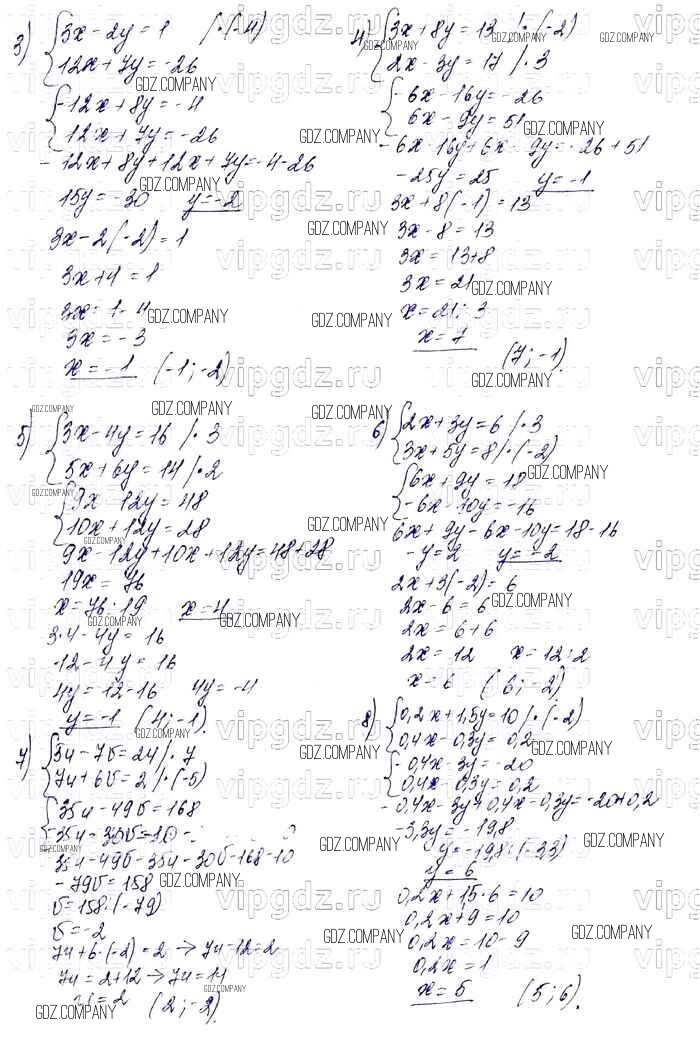 3) {3x - 2y = 1 | ·(-4)
12x + 7y = -26
{-12x + 8y = -4
12x + 7y = -26
-12x + 8y + 12x + 7y = -4 - 26
15y = -30 y = -2
3x - 2(-2) = 1
3x + 4 = 1
3x = 1 - 4
3x = -3
x = -1 (-1; -2)
4) {3x + 8y = 13 | ·(-2)
2x - 3y = 17 | · 3
{-6x - 16y = -26
6x - 9y = 51
-6x - 16y + 6x - 9y = -26 + 51
-25y = 25 y = -1
3x + 8(-1) = 13
3x - 8 = 13
3x = 13 + 8
3x = 21
x = 21 : 3
x = 7
(7; -1)
5) {3x - 4y = 16 | · 3
5x + 6y = 14 | · 2
{9x - 12y = 48
10x + 12y = 28
9x - 12y + 10x + 12y = 48 + 28
19x = 76
x = 76 : 19 x = 4
3·4 - 4y = 16
12 - 4y = 16
4y = 12 - 16 4y = -4
y = -1 (4; -1)
6) {2x + 3y = 6 | · 3
3x + 5y = 8 | ·(-2)
{6x + 9y = 18
-6x - 10y = -16
6x + 9y - 6x - 10y = 18 - 16
-y = 2 y = -2
2x + 3(-2) = 6
2x - 6 = 6
2x = 6 + 6
2x = 12 x = 12 : 2
x = 6 (6; -2)
7) {5u - 7v = 24 | · 7
7u + 6v = 2 | · (-5)
{35u - 49v = 168
-35u - 30v = -10
35u - 49v - 35u - 30v = 168 - 10
-79v = 158
v = 158 : (-79)
v = -2
7u + 6·(-2) = 2 → 7u - 12 = 2
7u = 2 + 12 → 7u = 14
u = 2 (2; -2)
8) {0,2x + 1,5y = 10 | ·(-2)
0,4x - 0,3y = 0,2
{-0,4x - 3y = -20
0,4x - 0,3y = 0,2
-0,4x - 3y + 0,4x - 0,3y = -20 + 0,2
-3,3y = -19,8
y = -19,8 : (-3,3)
y = 6
0,2x + 1,5 · 6 = 10
0,2x + 9 = 10
0,2x = 10 - 9
0,2x = 1
x = 5 (5; 6).
GDZ.COMPANY
vipgdz.ru